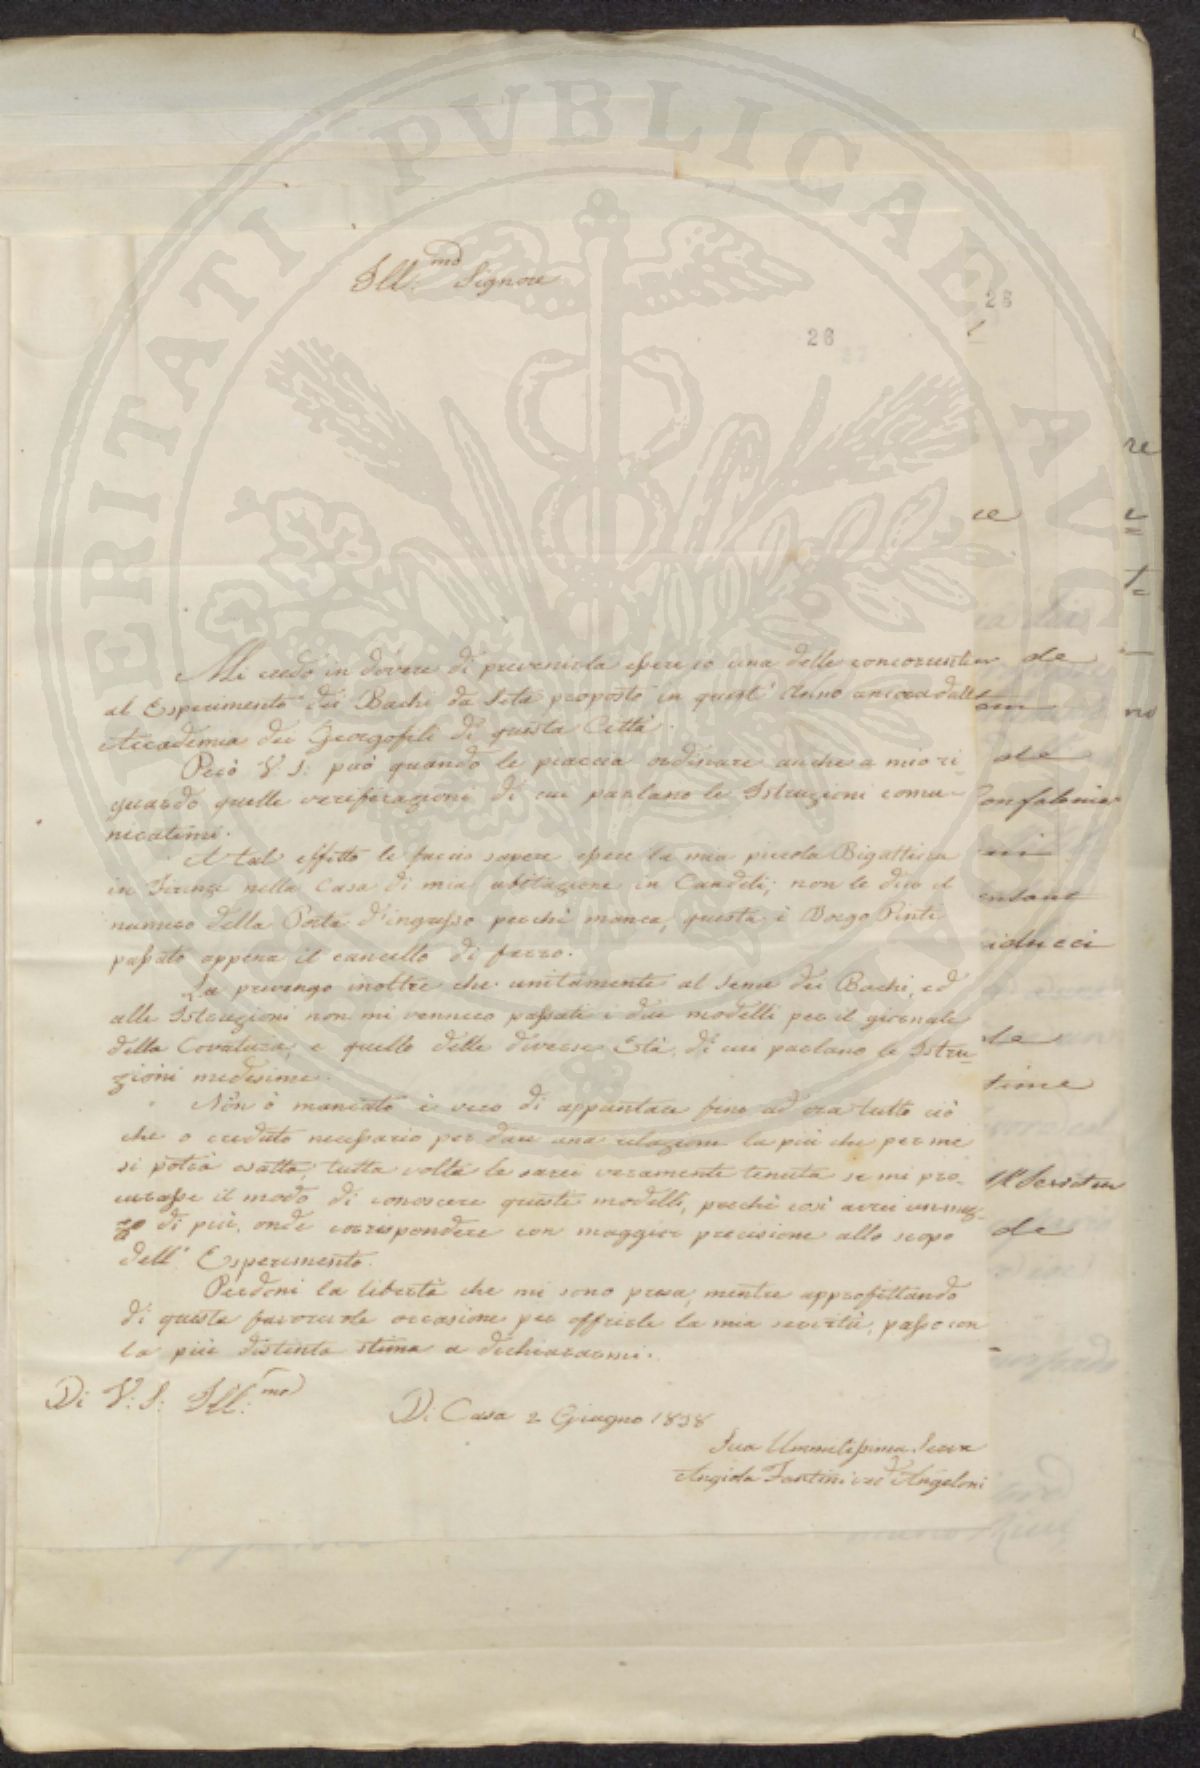 Ill:mo Signore
28
28
Mi credo in dovere di prevenirla essere io una delle concorrenti
al Esperimento dei Bachi da Seta proposto in quest' Anno ancora dall
Accademia dei Georgofili di questa Città.
Però V. S: può quando le piaccia ordinare anche a mio ri-
guardo quelle verificazioni di cui parlano le Istruzioni comu-
nicatemi.
A tal effetto le faccio sapere essere la mia piccola Bigattiera
in Firenze nella Casa di mia abitazione in Candeli; non le dico il
numero della Porta d'ingresso perchè manca, questa è Borgo Pinti
passato appena il cancello di ferro.
La prevengo inoltre che unitamente al seme dei Bachi, ed
alle Istruzioni non mi vennero passati i due modelli per il giornale
della Covatura, e quello delle diverse Età, di cui parlano le Istru-
zioni medesime.
Non ò mancato è vero di appuntare fino ad ora tutto ciò
che o creduto necessario per dare una relazione la più che per me
si potrà esatta, tutta volta le sarei veramente tenuta se mi pro-
curasse il modo di conoscere questi modelli, perchè così avrei un mez-
zo di più, onde corrispondere con maggior precisione allo scopo
dell' Esperimento.
Perdoni la libertà che mi sono presa, mentre approfittando
di questa favorevole occasione per offrirle la mia servitù, passo con
la più distinta stima a dichiararmi.
Di V: S: Ill:mo
Di Casa 2 Giugno 1838
Sua Ummilissima Serva
Angiola Fantini ved Angeloni
re
ce
de
no
de
Gonfalonier
iducci
de
sime
de
PVBLICAE